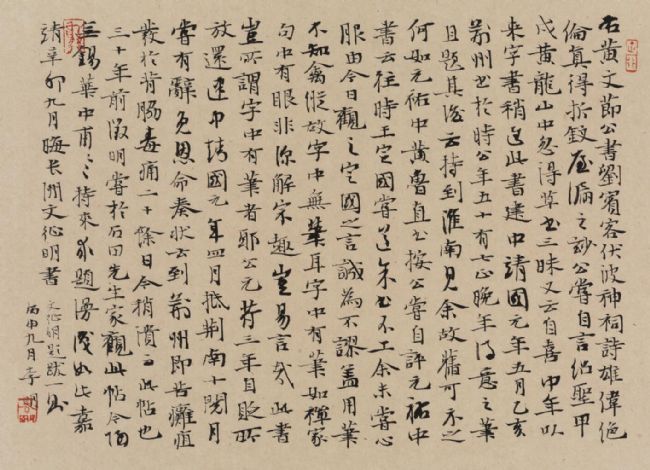 右黄文節公書劉賓客伏波神祠詩雄偉絕
倫真得折釵屋漏之妙公嘗自言紹聖甲
戌黄龍山中忽得草書三昧又云自喜中年以
來字書稍進此書建中靖國元年五月乙亥
荊州書於時公年五十有七正晚年得意之筆
且題其後云持到淮南見余故舊可示之
何如元祐中黄魯直書按公嘗自評元祐中
書云往時王定國嘗道余書不工余未嘗心
服由今日觀之定國之言誠為不謬蓋用筆
不知禽縱故字中無筆耳字中有筆如禪家
句中有眼非深解宗趣豈易言哉此書
豈所謂字中有筆者耶公元符三年自貶所
放還建中靖國元年四月抵荊南十閱月
嘗有辭免恩命奏狀云到荊州即苦癰疽
發於背脅毒痛二十餘日今稍潰而此帖也
三十年前徵明嘗於石田先生家觀此帖今歸
無錫華中甫々々持來求題漫識如此嘉
靖辛卯九月晦長洲文徵明書
文徵明題跋一則
丙申九月李